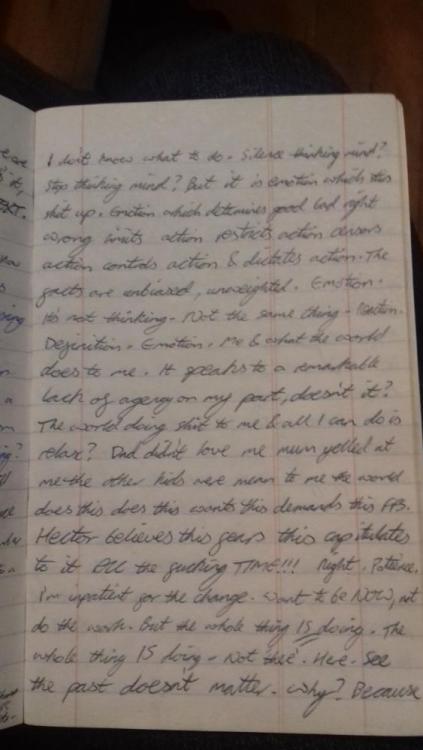 I don't know what to do. Silence thinking mind?
Stop thinking mind? But it is emotion which this
shit up. Emotion which determines good bad right
wrong limits action restricts action censors
action controls action & dictates action. The
facts are unbiased, unweighted. Emotion.
It's not thinking. Not the same thing.
Definition. Emotion. Me & what the world
does to me. It speaks to a remarkable
lack of agency on my part, doesn't it?
The world doing shit to me & all I can do is
relax? Dad didn't love me mum yelled at
me the other kids were mean to me the world
does this does this wants this demands this
Hector believes this fears this capitulates
to it ALL the fucking TIME!!! Right. Patience.
I'm impatient for the change. Want to be NOW, not
do the work. But the whole thing IS doing. The
whole thing IS doing. Not there. Here. See
the past doesn't matter. Why? Because